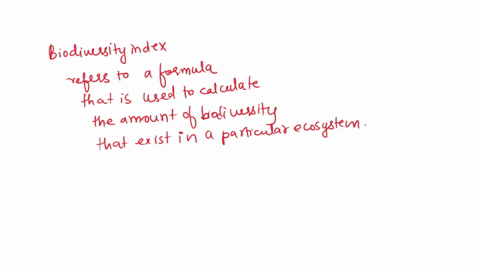 Biodiversity index
refers to a formula
that is used to calculate
the amount of biodiversity
that exist in a particular ecosystem.